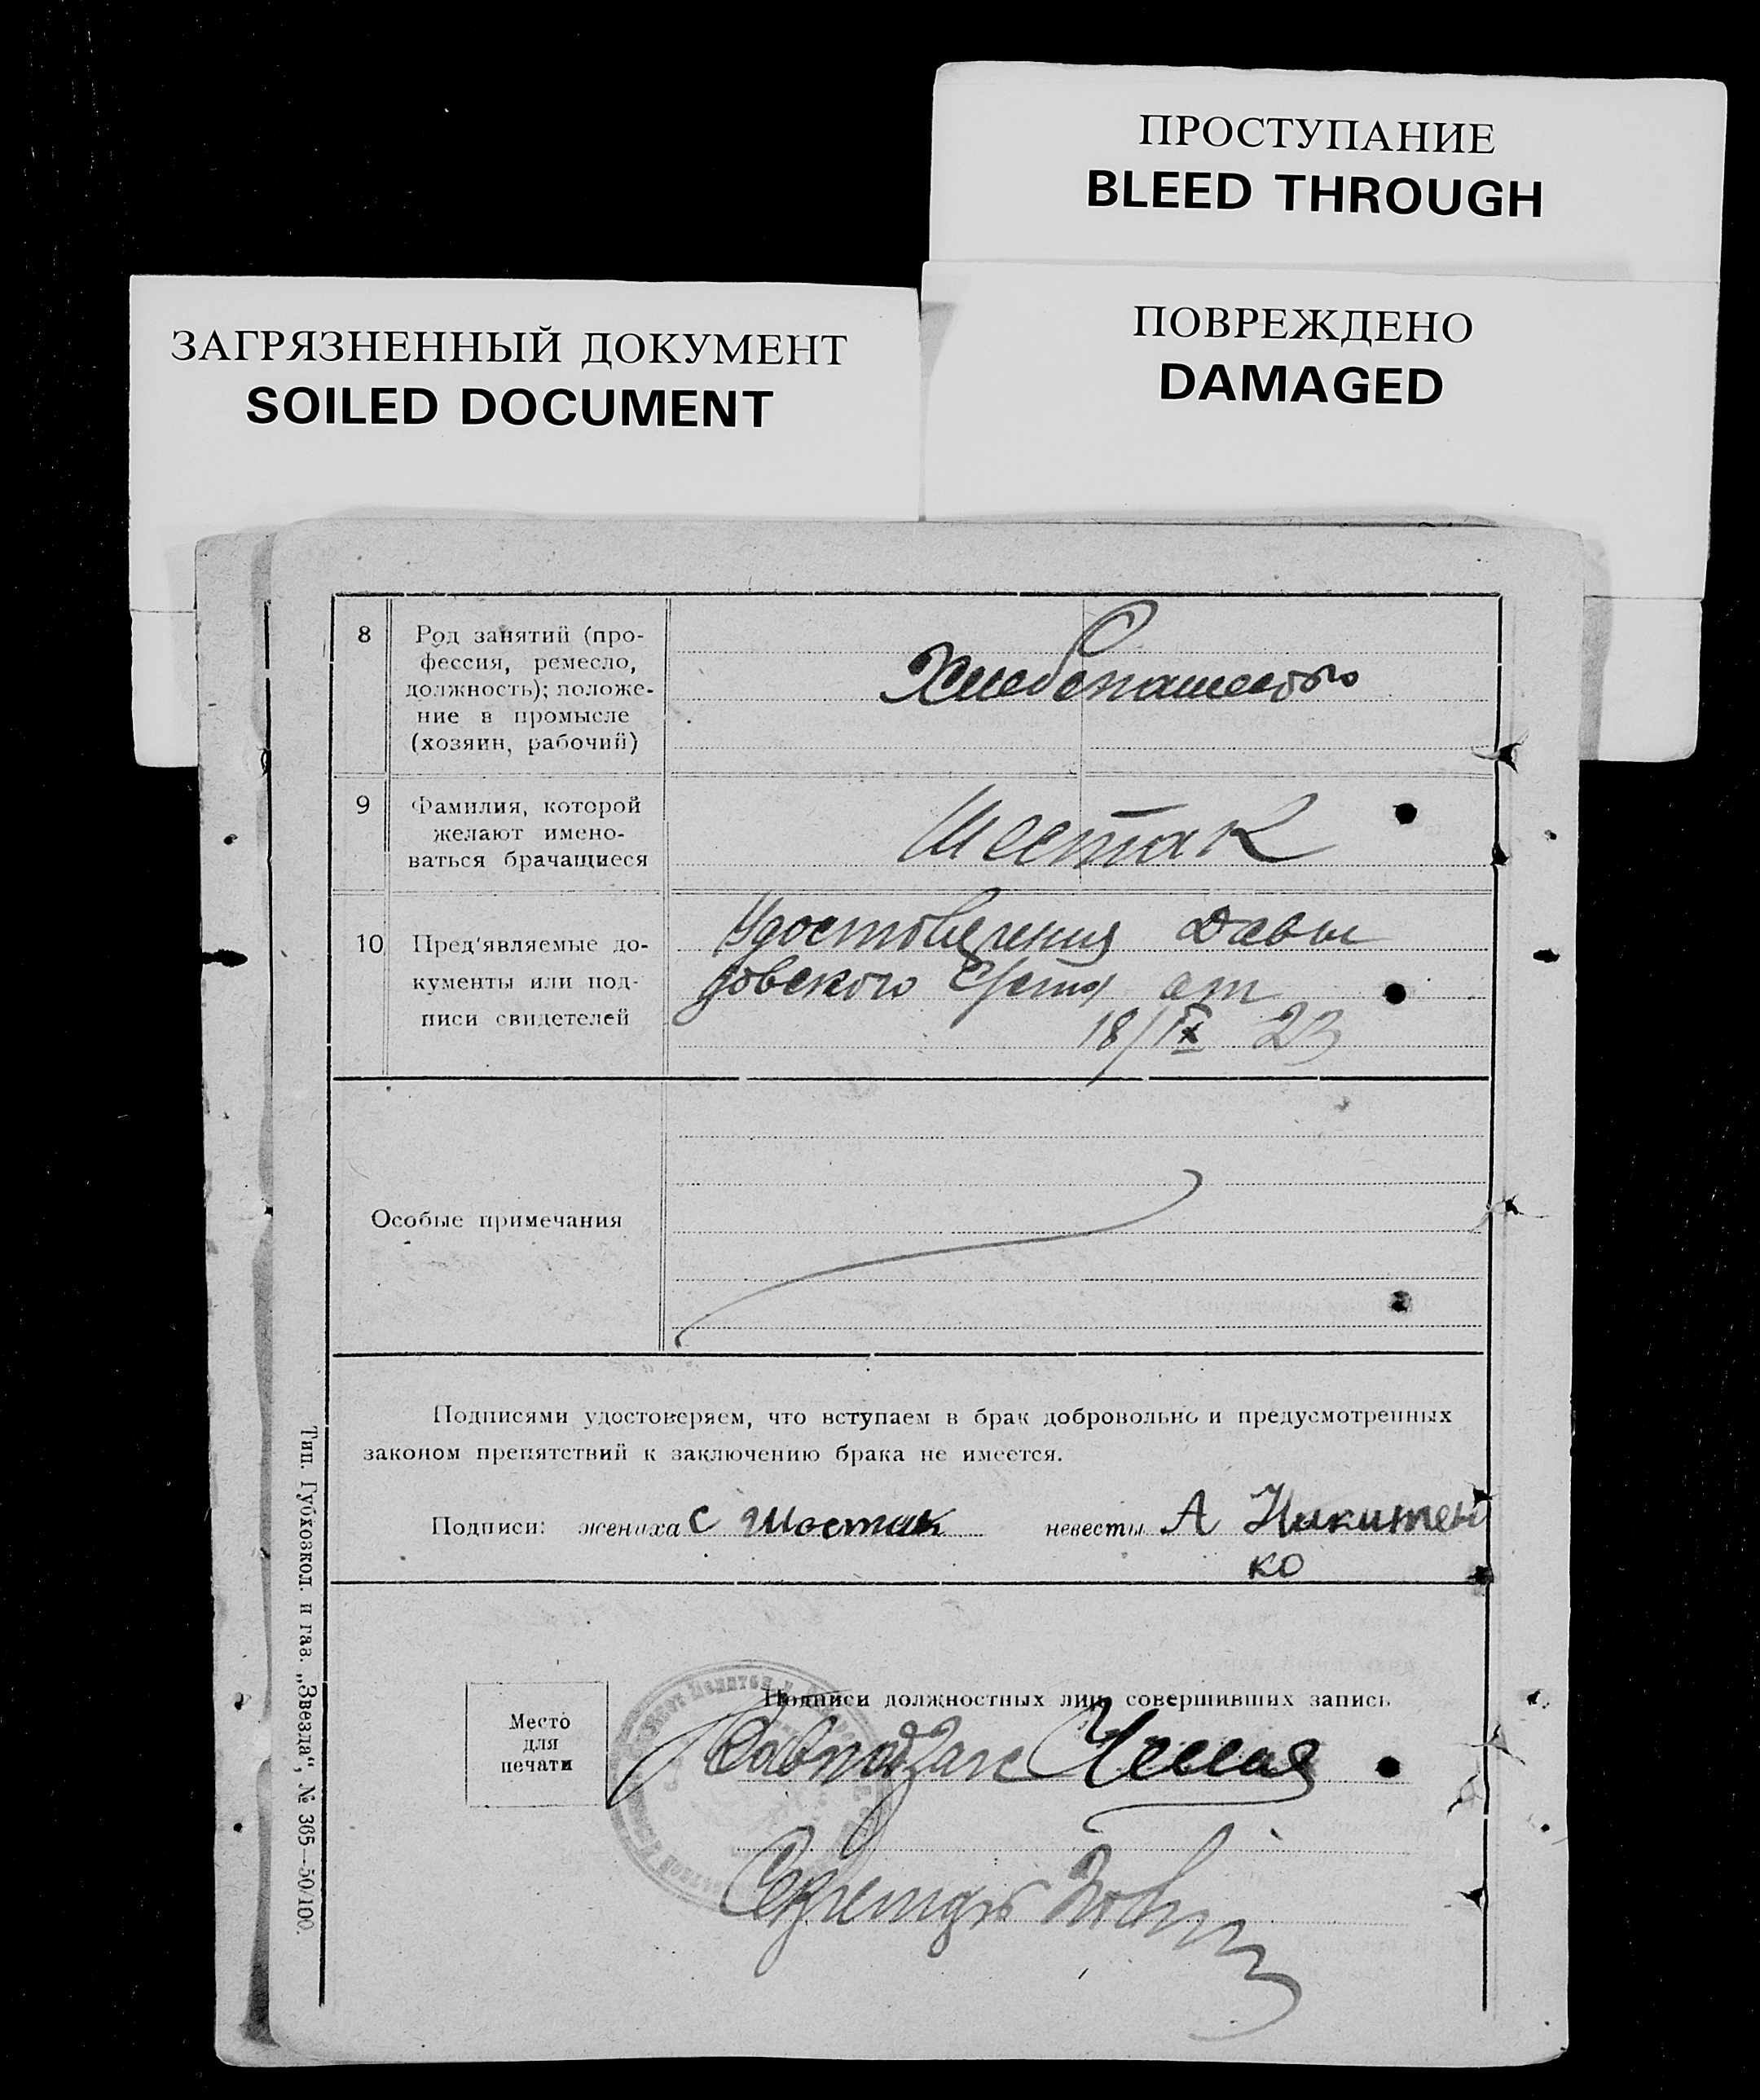 ПРОСТУПАНИЕ
BLEED THROUGH
ПОВРЕЖДЕНО
DAMAGED
ЗАГРЯЗНЕННЫЙ ДОКУМЕНТ
SOILED DOCUMENT
8
Род занятий (про-
фессия, ремесло,
должность); положе-
ние в промысле
(хозяин, рабочий)
Хлебопашество
9
Фамилия, которой
желают имено-
ваться брачащиеся
Шестак
10
Пред'являемые до-
кументы или под-
писи свидетелей
Удостоверения Давы
довского
от
18/IX 23
Особые примечания
Подписями удостоверяем, что вступаем в брак добровольно и предусмотренных
законом препятствий к заключению брака не имеется.
Подписи: жениха С Шостак невесты А Никитен
ко
Место
для
печати
Подписи должностных лиц, совершивших запись
Секретарь
Тип. Губхозкол. и газ. „Звезда“, № 365—50/100.